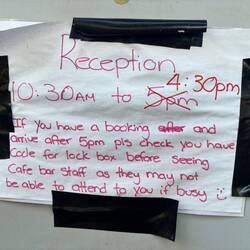 Reception
4:30pm
10:30AM to 5pm
If you have a booking after and
arrive after 5pm pls check you have
Code for lock box before seeing
Cafe bar staff as they may not
be able to attend to you if busy